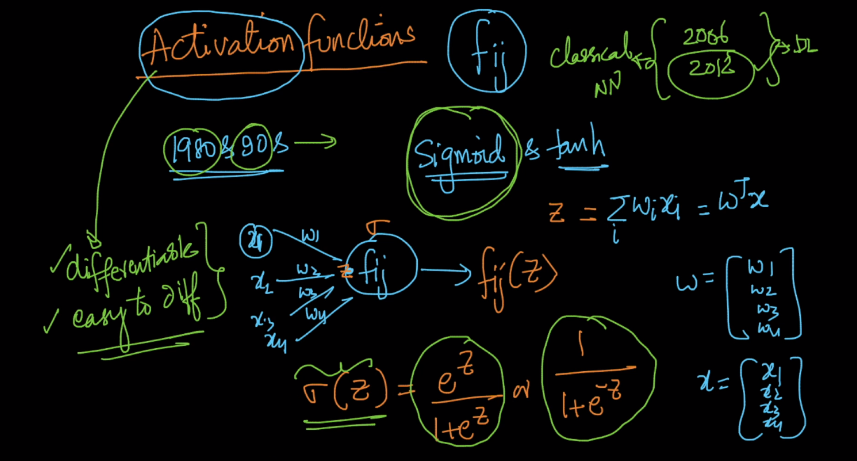 Activation functions
fij
classical NN
2006
2012
DL
1980s & 90s →
Sigmoid & tanh
z = Σ_i wixi = wᵀx
✓ differentiable
✓ easy to diff
x1
x2
x3
x4
w1
w2
w3
w4
z
σ
fij
→ fij(z)
w = [w1 w2 w3 w4]
σ(z) = e^z / (1+e^z) or 1 / (1+e^-z)
x = [x1 x2 x3 x4]